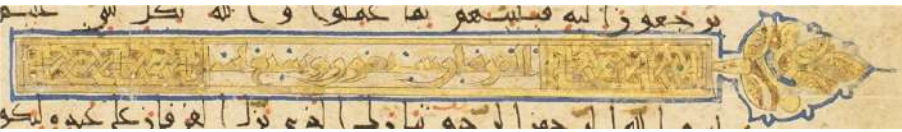 يرجعون اليه فينبئهم بما عملوا والله بكل شي عليم
الفرقان سبعون وسبع ايات
بسم الله الرحمن الرحيم تبارك الذي نزل الفرقان على عبده ليكو